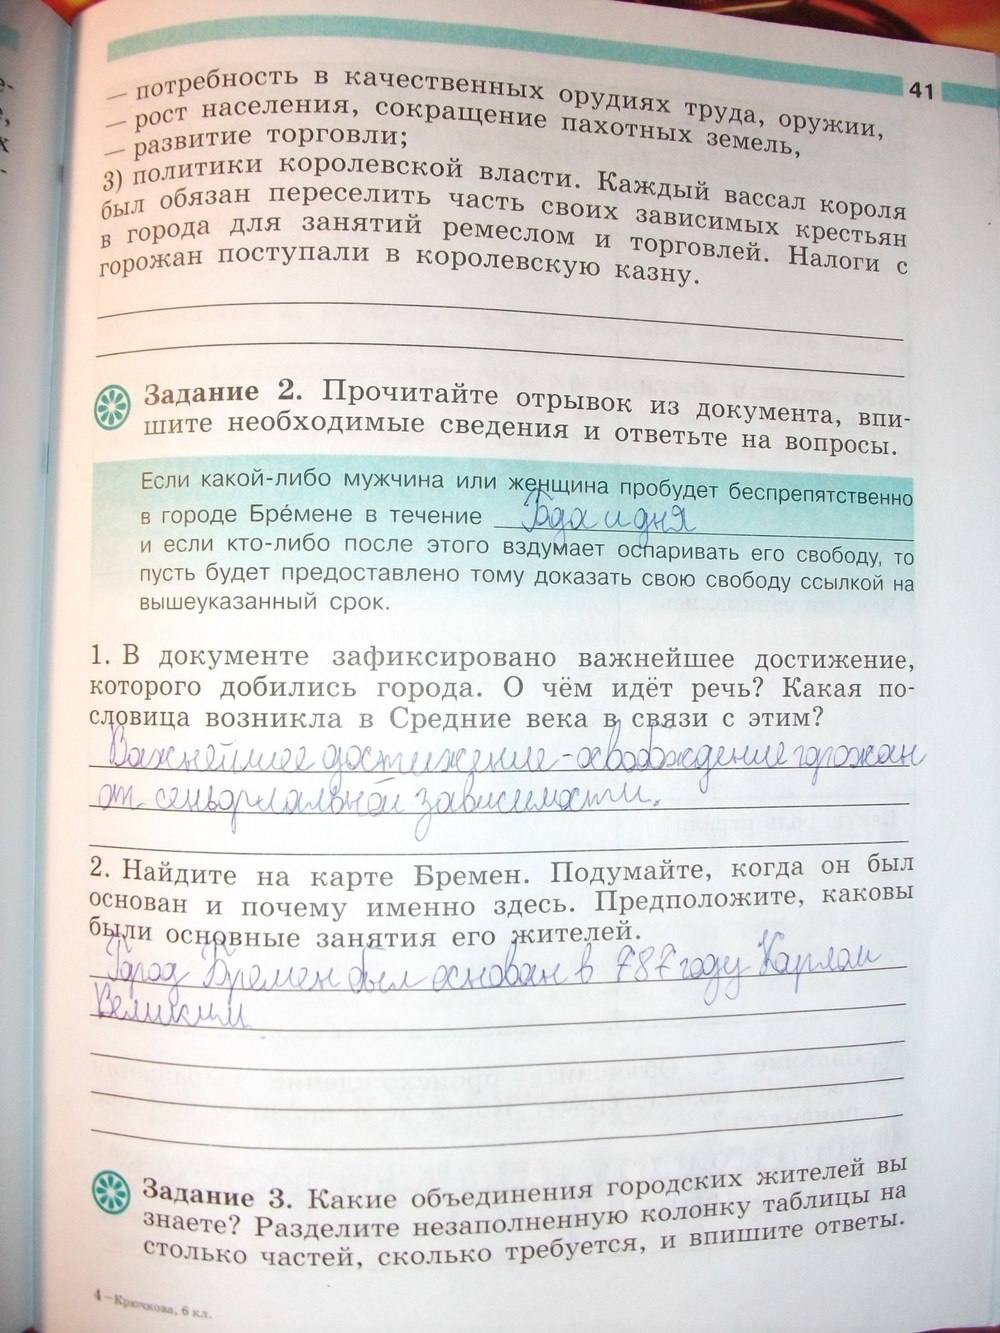 41
— потребность в качественных орудиях труда, оружии,
— рост населения, сокращение пахотных земель,
— развитие торговли;
3) политики королевской власти. Каждый вассал короля
был обязан переселить часть своих зависимых крестьян
в города для занятий ремеслом и торговлей. Налоги с
горожан поступали в королевскую казну.
Задание 2. Прочитайте отрывок из документа, впи-
шите необходимые сведения и ответьте на вопросы.
Если какой-либо мужчина или женщина пробудет беспрепятственно
в городе Бре́мене в течение Года и дня
и если кто-либо после этого вздумает оспаривать его свободу, то
пусть будет предоставлено тому доказать свою свободу ссылкой на
вышеуказанный срок.
1. В документе зафиксировано важнейшее достижение,
которого добились города. О чём идёт речь? Какая по-
словица возникла в Средние века в связи с этим?
Важнейшее достижение - освобождение горожан
от сеньориальной зависимости.
2. Найдите на карте Бремен. Подумайте, когда он был
основан и почему именно здесь. Предположите, каковы
были основные занятия его жителей.
Город Бремен был основан в 787 году Карлом
Великим
Задание 3. Какие объединения городских жителей вы
знаете? Разделите незаполненную колонку таблицы на
столько частей, сколько требуется, и впишите ответы.
4 – Крючкова, 6 кл.